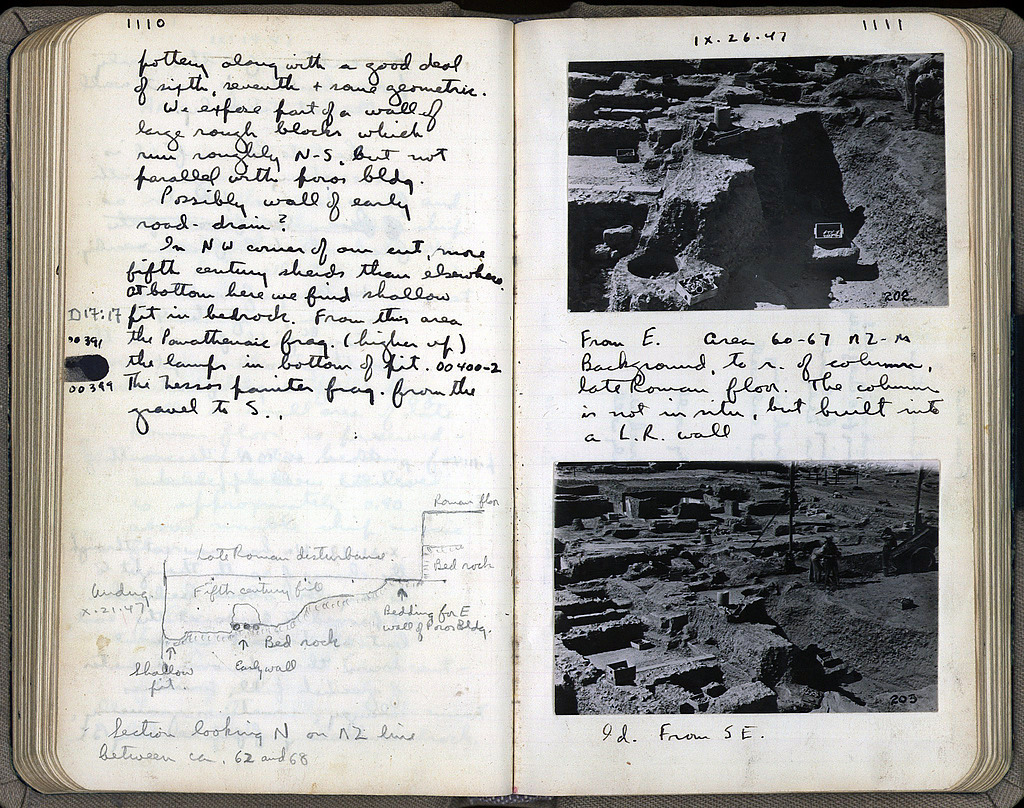 1110
pottery along with a good deal
of sixth, seventh + some geometric.
We expose part of a wall of
large rough blocks which
run roughly N-S, but not
parallel with poros bldg.
Possibly wall of early
road-drain?
In NW corner of our cut, more
fifth century sherds than elsewhere.
At bottom here we find shallow
D17:17 pit in bedrock. From this area
00391 the Panathenaic frag. (higher up)
the lamps in bottom of pit. 00400-2
00399 The Nessos painter frag. from the
gravel to S.
Roman floor
Late Roman disturbance
Bed rock
Fifth century fill
X.21.47
Bedding for E
wall of Poros Bldg.
Bed rock
Shallow
pit.
Early wall
Section looking N on ΛΖ line
between ca. 62 and 68
1111
IX.26.47
202
From E. Area 60-67 ΛΖ-Μ
Background, to r. of column,
late Roman floor. The column
is not in situ, but built into
a L.R. wall
203
Id. From SE.